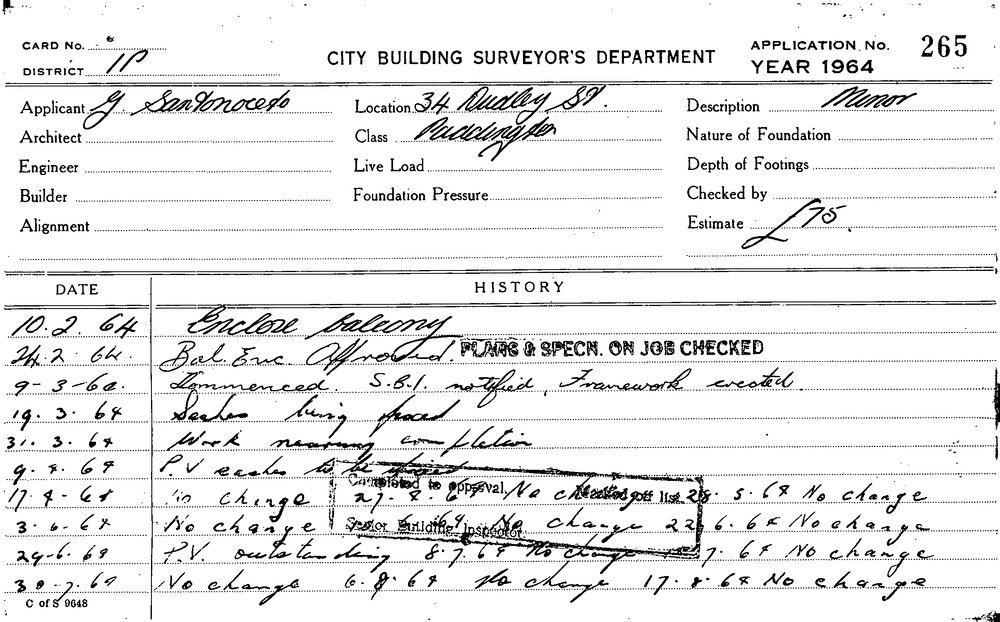 CARD No. 6
DISTRICT 1P
CITY BUILDING SURVEYOR'S DEPARTMENT
APPLICATION No. 265
YEAR 1964
Applicant G Santonoceto
Location 34 Dudley St.
Description Minor
Architect
Class Paddington
Nature of Foundation
Engineer
Live Load
Depth of Footings
Builder
Foundation Pressure
Checked by
Alignment
Estimate £75.
DATE HISTORY
10.2.64 Enclose balcony
24.2.64. Bal. Enc. Approved. PLANS & SPECN. ON JOB CHECKED
9-3-64. Commenced. S.B.I. notified, Framework erected.
19.3.64 Sashes being placed
31.3.64 Work nearing completion
9.4.64 P.V sashes to be
Completed to approval. Marked off list
17-4-64 No change 27.4.64 No change 28.5.64 No change
Senior Building Inspector
3.6.64 No change No change 22.6.64 No change
29.6.64 P.V. outstanding 8.7.64 No change 7.64 No change
30.7.64 No change 6.8.64 No change 17.8.64 No change
C of S 9648